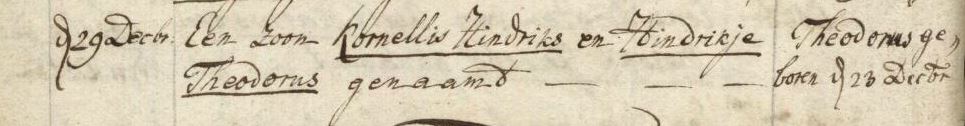 d 29 Decbr. Een zoon Kornellis Hindriks en Hindrikje Theodorus ge,
Theodorus genaamd — — — boren d 23 Decbr